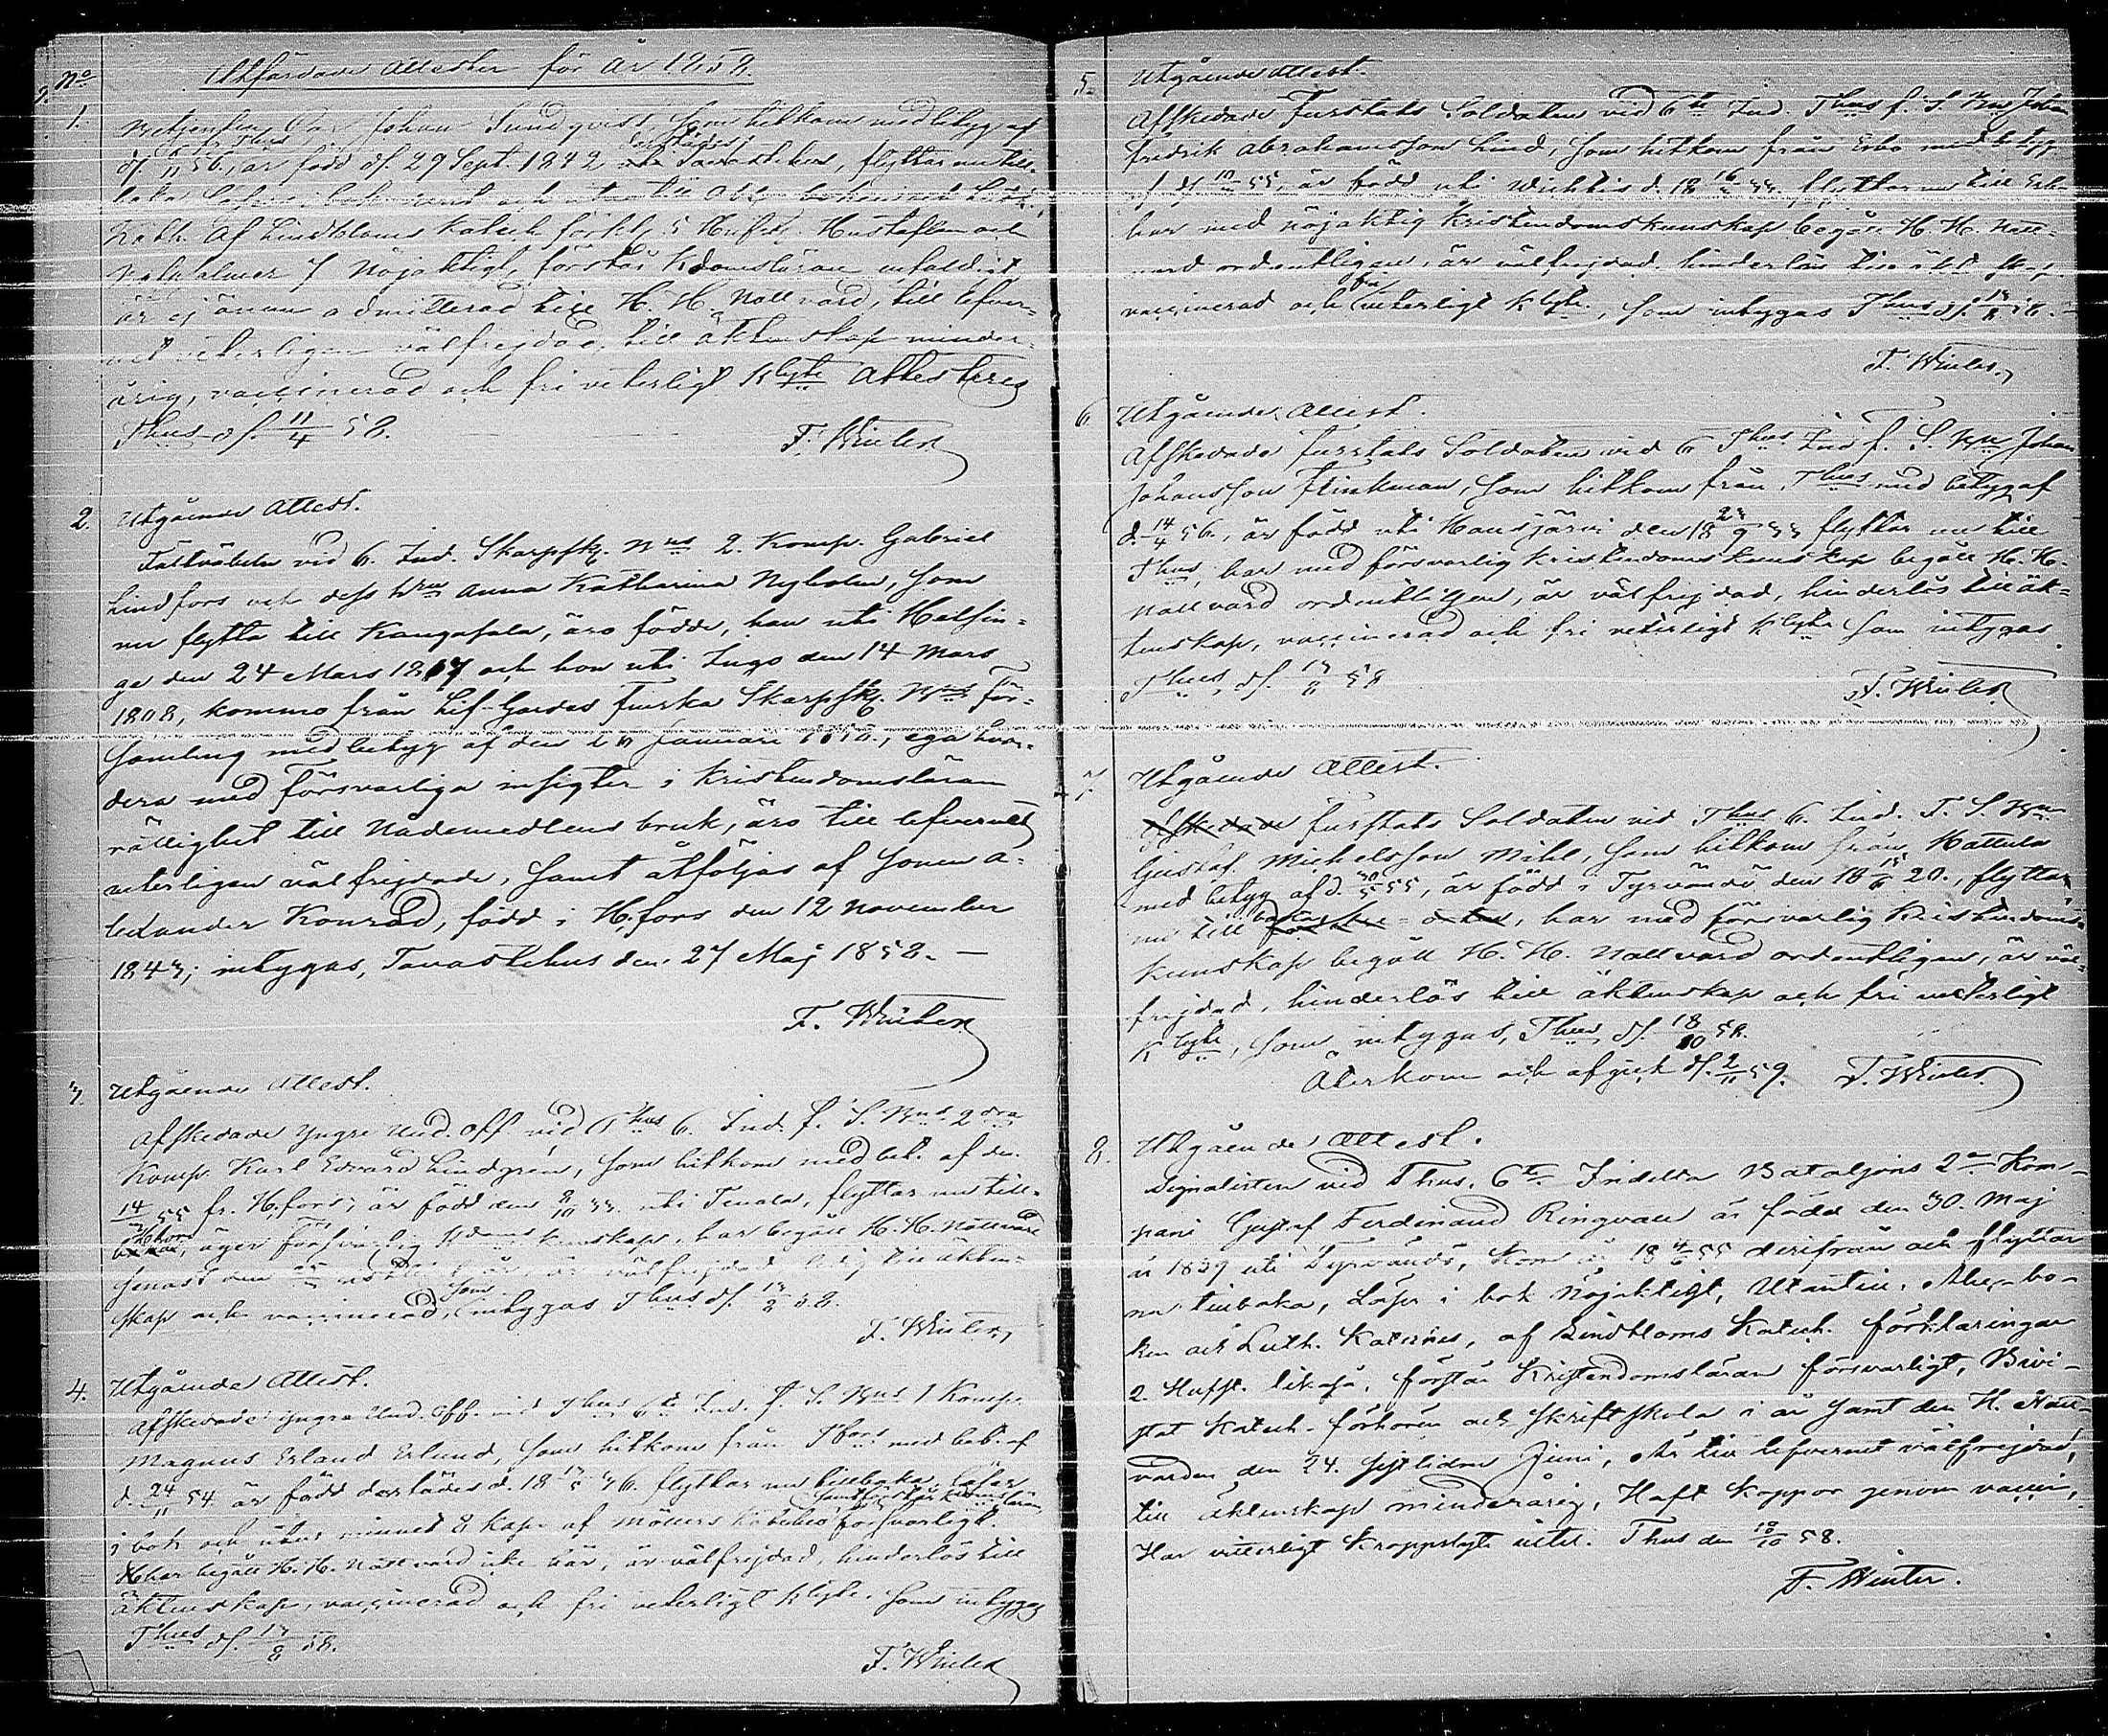 No
Utfärdade Attester för År 1858.
1.
Johan Sundqvist, som hitkom med betyg af
d. 56., är född d. 29 Sept. 1842 Tavastehus, flyttar nu till-
baka
Kath. af Lindbloms Katech. förkl. 5 Hufst. Hustaflan och
7 nöjaktigt, förstår Kdomsläran enfaldigt,
är ej ännu admitterad till H. H. Nattvard, till lefver-
net veterligen välfrejdad, till äktenskap minder-
årig, vaccinerad och fri veterligt Klyte Attesteras
Thus d. 11/4 58.
F. Winter
2. Utgående Attest.
Fältväbeln vid 6. Ind. Skarpsk. Bns 2. Komp. Gabriel
Lindfors och dess Hru Anna Katharina Nyholm, som
nu flytta till Kangasala, äro födde, han uti Helsin-
ge den 24 Mars 1817 och hon uti Ingo den 14 Mars
1808, kommo från Lif-Gardes Finska Skarpsk. Bns För-
samling med betyg af den Januari, ega hvar-
dera med försvarliga insigter i Kristendomsläran
rättighet till Nådemedlens bruk, äro till lefvernet
veterligen välfrejdade, samt åtföljas af sonen A-
lexander Konrad, född i H.fors den 12 November
1843; intygas, Tavastehus den 27 Maj 1858. —
F. Winter
3. Utgående Attest.
Afskedade Yngre Und. Off. vid Thus 6. Ind. f. S. Bns 2dra
Komp. Karl Edvard Lindgren, som hitkom med bet. af den
14/3 55 fr. H.fors, är född den 8/10 33. uti Tenala, flyttar nu till
äger försvarlig Kdoms kunskap, har begått H. H. Nattvard
senast den är välfrejdad, ledig till äkten-
skap och vaccinerad, som intygas Thus d. 13/8 58.
F. Winter
4. Utgående Attest.
Afskedade yngre Und. Off. vid Thus 6te Ind. f. S. Bns 1 Komp.
Magnus Erland Erlund, som hitkom från med bet. af
d. 24/11 54 är född derstädes d. 18 36. flyttar nu tillbaka, läser
i bok och utur minnet 8 kap. af Möllers Kateches försvarligt.
har begått H. H. Nattvard här, är välfrejdad, hinderlös till
äktenskap, vaccinerad och fri veterligt Klyte. Som intygas
Thus d. 13/8 58.
F. Winter
5. Utgående Attest.
Afskedade Furstats Soldaten vid 6te Ind. Thus f. S. Bns Johan
Fredrik Abrahamsson Lind, som hitkom från Esbo med betyg
af d. 10 55, är född uti Wichtis d. 18 16 33. flyttar nu till Esbo
har med nöjaktig Kristendomskunskap begått H. H. Natt-
vard ordentligen, är välfrejdad, hinderlös till äktenskap
vaccinerad och fri veterligt Klyte, som intygas Thus d. 13/8 58.
F. Winter
6. Utgående Attest.
Afskedade Furstats Soldaten vid 6 Thus Ind f. S. Bn Johan
Johansson Flinkman, som hitkom från Thus med betyg af
d. 14/4 56., är född uti Hausjärvi den 18 23/9 33 flyttar nu till
Thus, har med försvarlig Kristendoms kunskap begått H. H.
Nattvard ordentligen, är välfrejdad, hinderlös till äk-
tenskap, vaccinerad och fri veterligt Klyte som intygas.
Thus, d. 13/8 58
F. Winter
7. Utgående Attest.
Afskedade Furstats Soldaten vid Thus 6. Ind. F. S. Bn
Gustaf Michelsson Mihl, som hitkom från Hattula
med betyg af d. 30/5 55, är född i Tyrvändö den 18 15/6 20., flyttar
nu till orten, har med försvarlig Kristendoms-
kunskap begått H. H. Nattvard ordentligen, är väl-
frejdad, hinderlös till äktenskap och fri veterligt
Klyte, som intygas, Thus, d. 18/10 58.
Återkom och afgick d. 2/11 59. F. Winter
8. Utgående Attest.
Signalisten vid Thus. 6te Indelta Bataljons 2a Kom-
pani Gustaf Ferdinand Ringvall är född den 30. Maj
år 1839 uti Tyrvändö, kom år 18 4/6 55 derifrån och flyttar
nu tillbaka, Läser i bok nöjaktigt, Utantill: Abc-bo-
ken och Luth. Kateches, af Lindbloms Katech. förklaringar
2. Hufst. likaså, förstår Kristendomsläran försvarligt, Bivi-
stat Katech. förhören och skriftskola i år samt den H. Natt-
varden den 24. sistlidne Juni, Är till lefvernet välfrejdad,
till äktenskap minderårig, Haft Koppor genom vaccin,
Har vitterligt Kroppslyte intet. Thus den 18/10 58.
F. Winter.